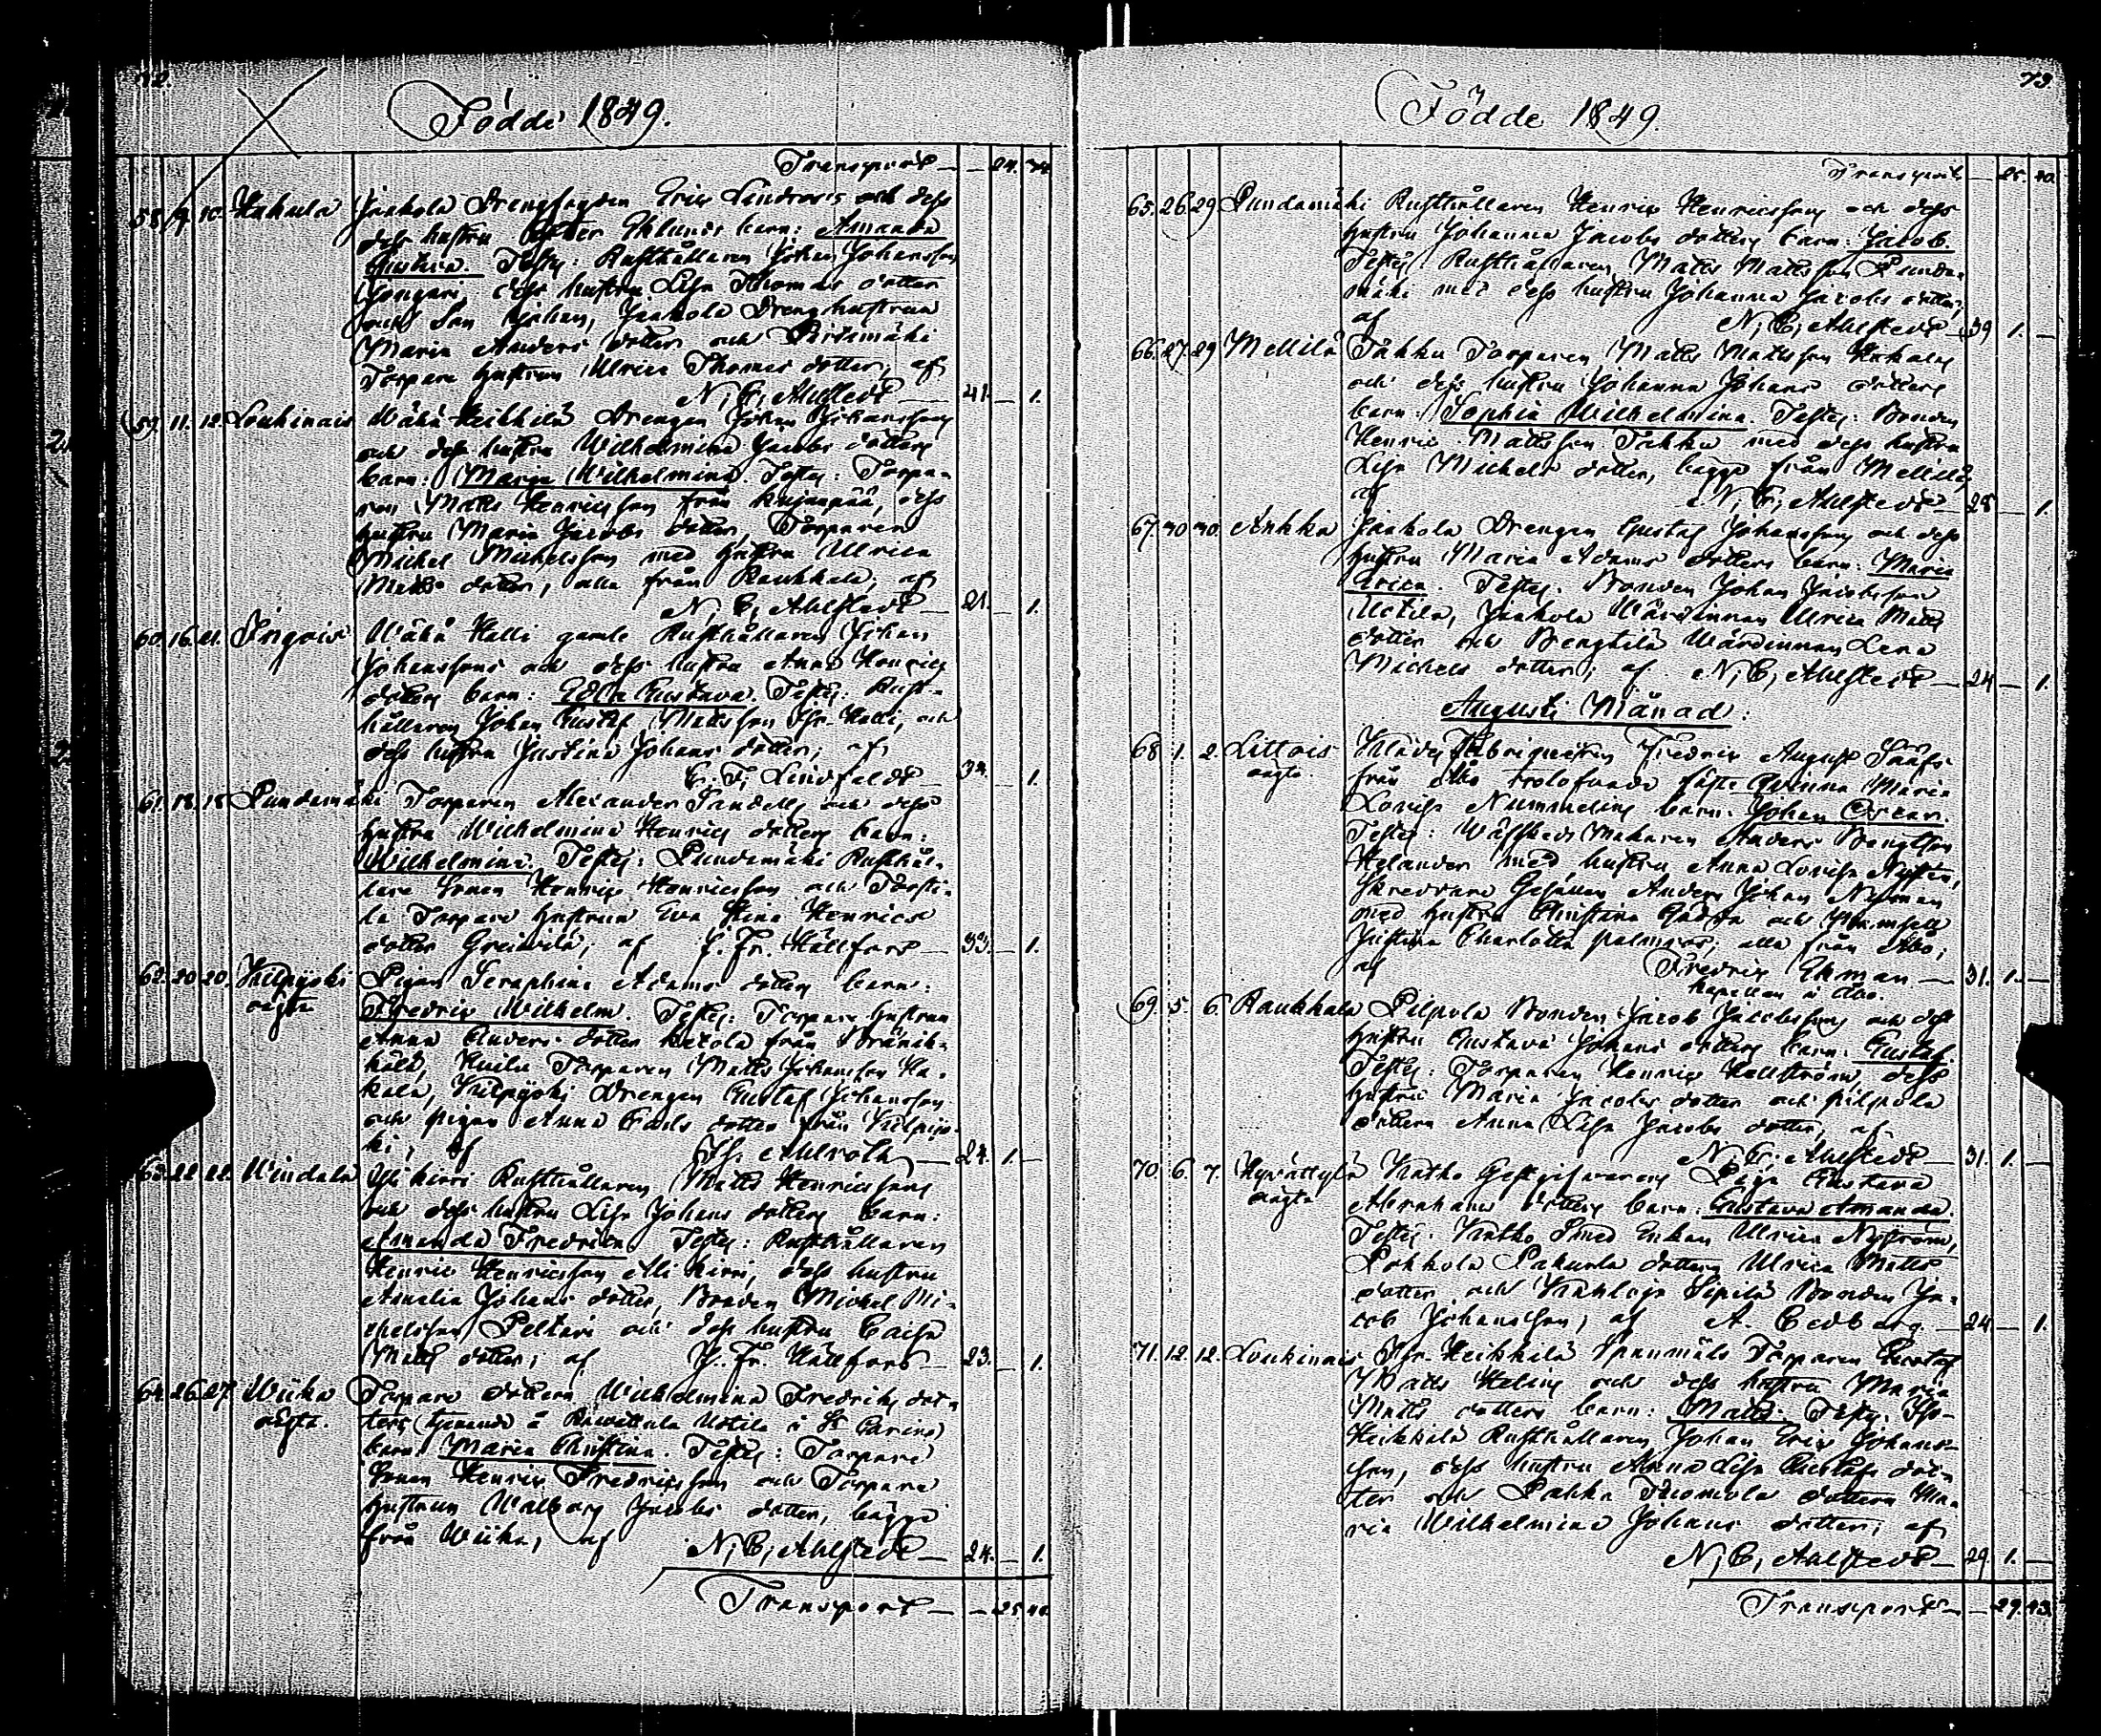 72.
Födde 1849.
Transport — — 24. 34.
58. 9. 10. Hakula Jaakola Drengkarlen Eric Lindroos och dess
dess hustru Ekelunds barn: Amanda
Gustava. Testes: Rusthållaren Johan Johansson
dess hustru Lisa Thomas dotter
och Son Johan, Jaakola Drengs hustrun
Maria Anders dotter och Pirtemäki
Torpare hustrun Ulrica Thomas dotter, af
N, C, Ahlstedt — 41. — 1.
59. 11. 12. Loukinais Wähä-Heikkilä Drengen Johan Johanssons
och dess hustru Wilhelmina Jacobs dotters
barn: Maria Wilhelmina. Testes: Torpa-
ren Matts Henricsson från Kujanpää, dess
hustru Maria Jacobs dotter, Torparen
Michel Michelsson med hustru Ulrica
Matts dotter, alla från Raukkala, af
N, C, Ahlstedt — 21. — 1.
60. 16. 21. Ingois Wähä Halli gamle Rusthållaren Johan
Johanssons och dess hustru Anna Henrics
dotters barn: Edla Gustava. Testes: Rust-
hållaren Johan Gustaf Mattsson Iso-Halli, och
dess hustru Justina Johans dotter; af
C. F. Lindfeldt — — 1.
61. 18. 18. Pundamäki Torparen Alexander Sandells och dess
hustru Wilhelmina Henrics dotters barn:
Wilhelmina. Testes: Pundamäki Rusthål-
lare Sonen Henric Henricsson och
la Torpare hustrun Eva Stina Henrics
dotter Greivilä; af Hällfors — 33. — 1.
62. 20. 20. Kulpyöli Pigan Seraphina Adams dotters barn:
oägta Fredric Wilhelm. Testes: Torpare hustrun
Anna Anders dotter Ketola från
Torparen Matts Johansson Ha-
kala, Drengen Gustaf Johansson
och pigan Anna Carls dotter från
ki; af Ahlroth — 24. 1. —
63. 22. 22. Windala Yli Kirri Rusthållaren Matts Henricssons
och dess hustru Lisa Johans dotters barn:
Amanda Fredrica. Testes: Rusthållaren
Henric Henricsson Alli Kirri, dess hustru
Amalia Johans dotter, Bonden Michel Mi-
chelsson Peltari och dess hustru Caisa
Matts dotter; af Hällfors — 23. — 1.
64. 26. 27. Wiika Torpare dottern Wilhelmina Fredriks dot-
oägta. ters (tjenande å Räwattula Uotila i St Carins)
barn: Maria Christina. Testes: Torpare
Sonen Henric Fredricsson och Torpare
hustrun Walborg Jacobs dotter, bägge
från Wiika, af N, C, Ahlstedt — 24. — 1.
Transport — —
73.
Födde 1849.
Transport —
65. 26. 29. Pundamäki Rusthållaren Henric Henricssons och dess
hustru Johanna Jacobs dotters barn: Jacob.
Testes: Rusthållaren Matts Mattsson Punda-
mäki med dess hustru Johanna Jacobs dotter;
af N, C, Ahlstedt — 39 1. —
66. 27. 29 Mellilä Takku Torparen Matts Mattsson Hakalas
och dess hustru Johanna Johans dotters
barn: Sophia Wilhelmina. Testes: Bonden
Henric Mattsson Takku med dess hustru
Lisa Michels dotter, bägge från Mellilä,
af N, C, Ahlstedt — 28 — 1.
67. 30 30. Ankka Jaakola Drengen Gustaf Johanssons och dess
hustru Maria Adams dotters barn: Maria
Erica. Testes: Bonden Johan Jacobsson
Uotila, Jaakola Wärdinnan Ulrica Matts
dotter och Bengtilä Wärdinnan Lena
Michels dotter; af N, C, Ahlstedt — 24 — 1.
Augusti Månad:
68 1. 2. Littois Klädes Fabriqueuren Fredric August Sääfs
oägta. från Åbo trolofvade fäste Qvinna Maria
Lovisa Nummelins barn: Johan Oscar.
Testes: Makaren Anders Bengtsson
Helander med hustru Anna Lovisa
Skreddare Gesällen Anders Johan Nyman
med hustru Christina och Mamsell
Justina Charlotta Palmroos; alla från Åbo;
af Fredric Ekman — 31. 1. —
Kapellan i Åbo.
69. 5. 6. Raukkala Pilpola Bonden Jacob Jacobssons och dess
hustru Gustava Johans dotters barn: Gustaf.
Testes: Torparen Henric Hellström, dess
hustru Maria Jacobs dotter och Pilpola
dottern Anna Lisa Jacobs dotter, af
N, C, Ahlstedt — 31. 1. —
70. 6. 7. Hyvättylä Katko Gästgifvarens Piga Gustava
oägta Abrahams dotters barn: Gustava Amanda.
Testes: Katko Smed Enkan Ulrica Nyström,
Pokkola Pakurla dottern Ulrica Matts
dotter och Sipilä Bonden Ja-
cob Johansson; af A. Cedberg. — 24 — 1.
71. 12. 12. Loukinais Iso-Heikkilä Spanmåls Torparen Gustaf
Matts Helins och dess hustru Maria
Matts dotters barn: Matts. Testes: Iso-
Heikkilä Rusthållaren Johan Eric Johans-
son, dess hustru Anna Lisa Gustafs dot-
ter och Pakka Tuomola dottern Ma-
ria Wilhelmina Johans dotter; af
N, C, Ahlstedt — 29. 1. —
Transport — — 29. 43.